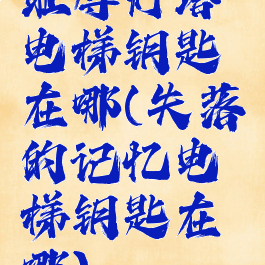 电梯钥匙
在哪(失落
的记忆电
梯钥匙在
哪)